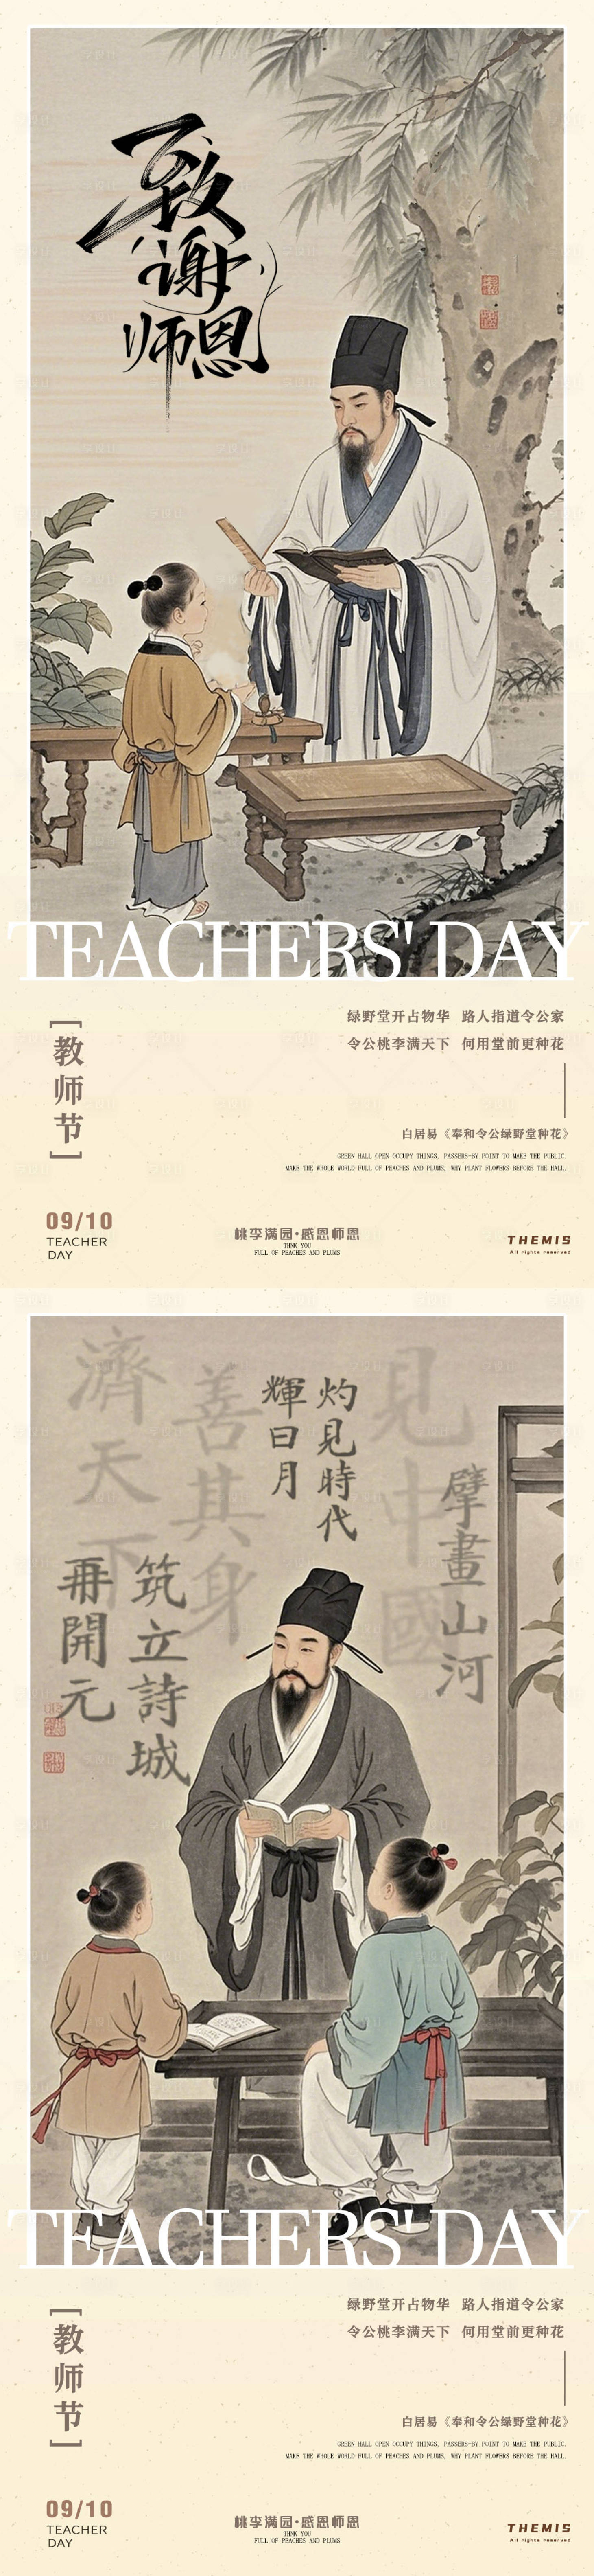 致谢师恩
TEACHERS' DAY
[教师节]
绿野堂开占物华 路人指道令公家
令公桃李满天下 何用堂前更种花
白居易《奉和令公绿野堂种花》
GREEN HALL OPEN OCCUPY THINGS, PASSERS-BY POINT TO MAKE THE PUBLIC.
MAKE THE WHOLE WORLD FULL OF PEACHES AND PLUMS, WHY PLANT FLOWERS BEFORE THE HALL.
09/10
TEACHER
DAY
桃李满园·感恩师恩
THNK YOU
FULL OF PEACHES AND PLUMS
THEMIS
All rights reserved
見中國
善其身
濟天下
擘畫山河
灼見時代
輝日月
筑立詩城
再開元
TEACHERS' DAY
[教师节]
绿野堂开占物华 路人指道令公家
令公桃李满天下 何用堂前更种花
白居易《奉和令公绿野堂种花》
GREEN HALL OPEN OCCUPY THINGS, PASSERS-BY POINT TO MAKE THE PUBLIC.
MAKE THE WHOLE WORLD FULL OF PEACHES AND PLUMS, WHY PLANT FLOWERS BEFORE THE HALL.
09/10
TEACHER
DAY
桃李满园·感恩师恩
THNK YOU
FULL OF PEACHES AND PLUMS
THEMIS
All rights reserved